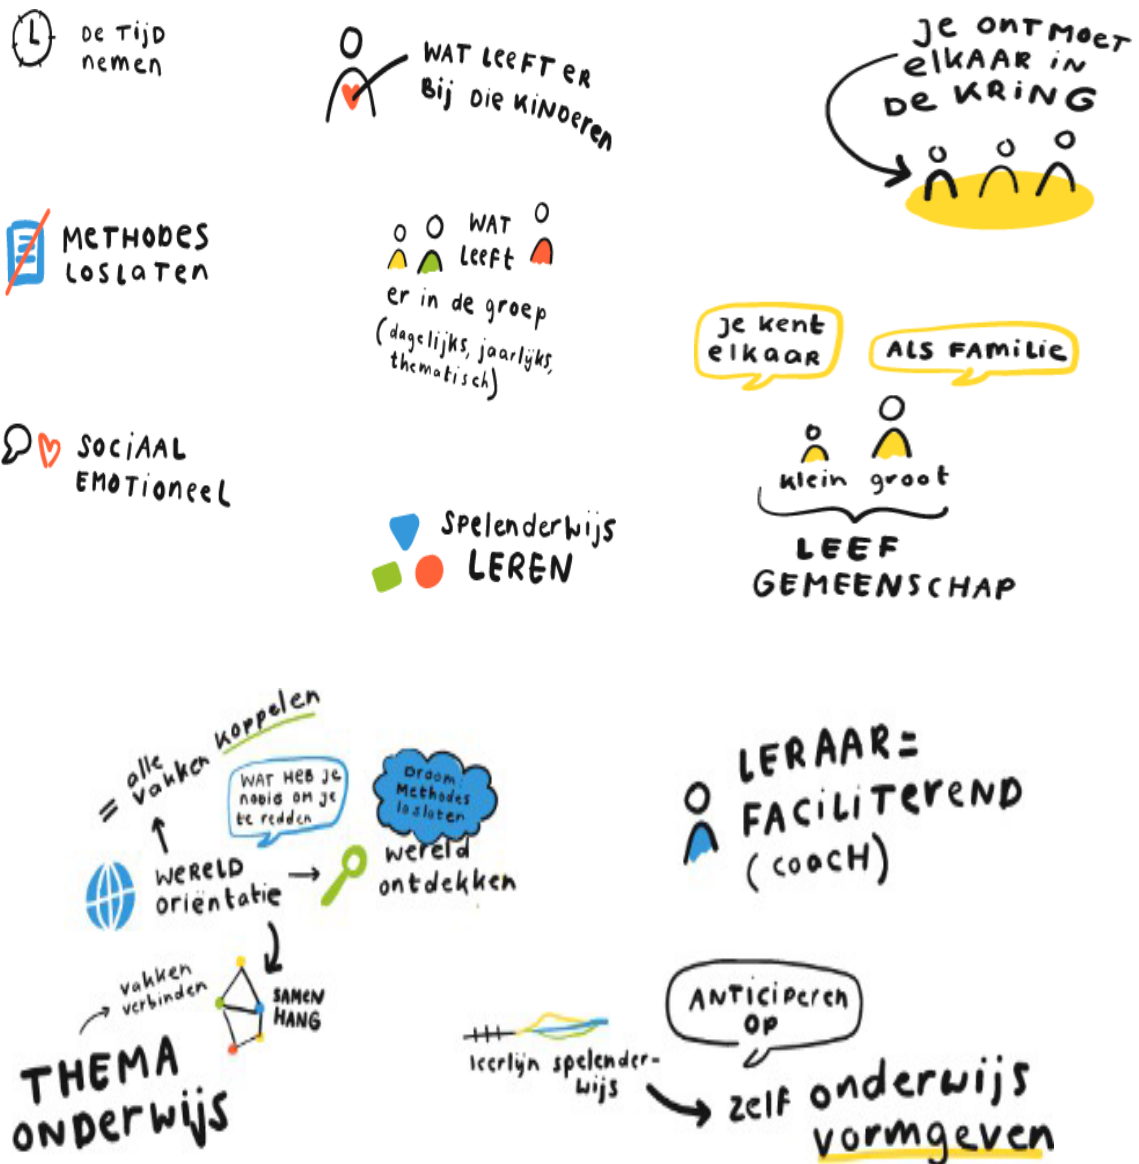 De Tijd
nemen
WAT LeeFT eR
Bij Die KiNDeren
je ONTMOeT
elKAAR iN
De KRiNG
MeTHODeS
LOSLaTen
WAT
leeft
er in de groep
(dagelijks, jaarlijks,
thematisch)
je kent
elkaaR
ALS FAMiLie
klein groot
LEEF
GEMEENSCHAP
SOCiAAL
EMOTioneeL
Spelenderwijs
LEREN
= alle
vakken koppelen
WAT HeB Je
nodig om je
te redden
Droom:
Methodes
loslaten
WeReLD
oriëntatie
wereld
ontdekken
vakken
verbinden
SAMeN
HANG
THEMA
ONDerwijs
LERAAR=
FACiLiTerEND
(COACH)
ANTiCiPeren
OP
leerlijn spelender-
wijs
zelf onderwijs
vormgeven